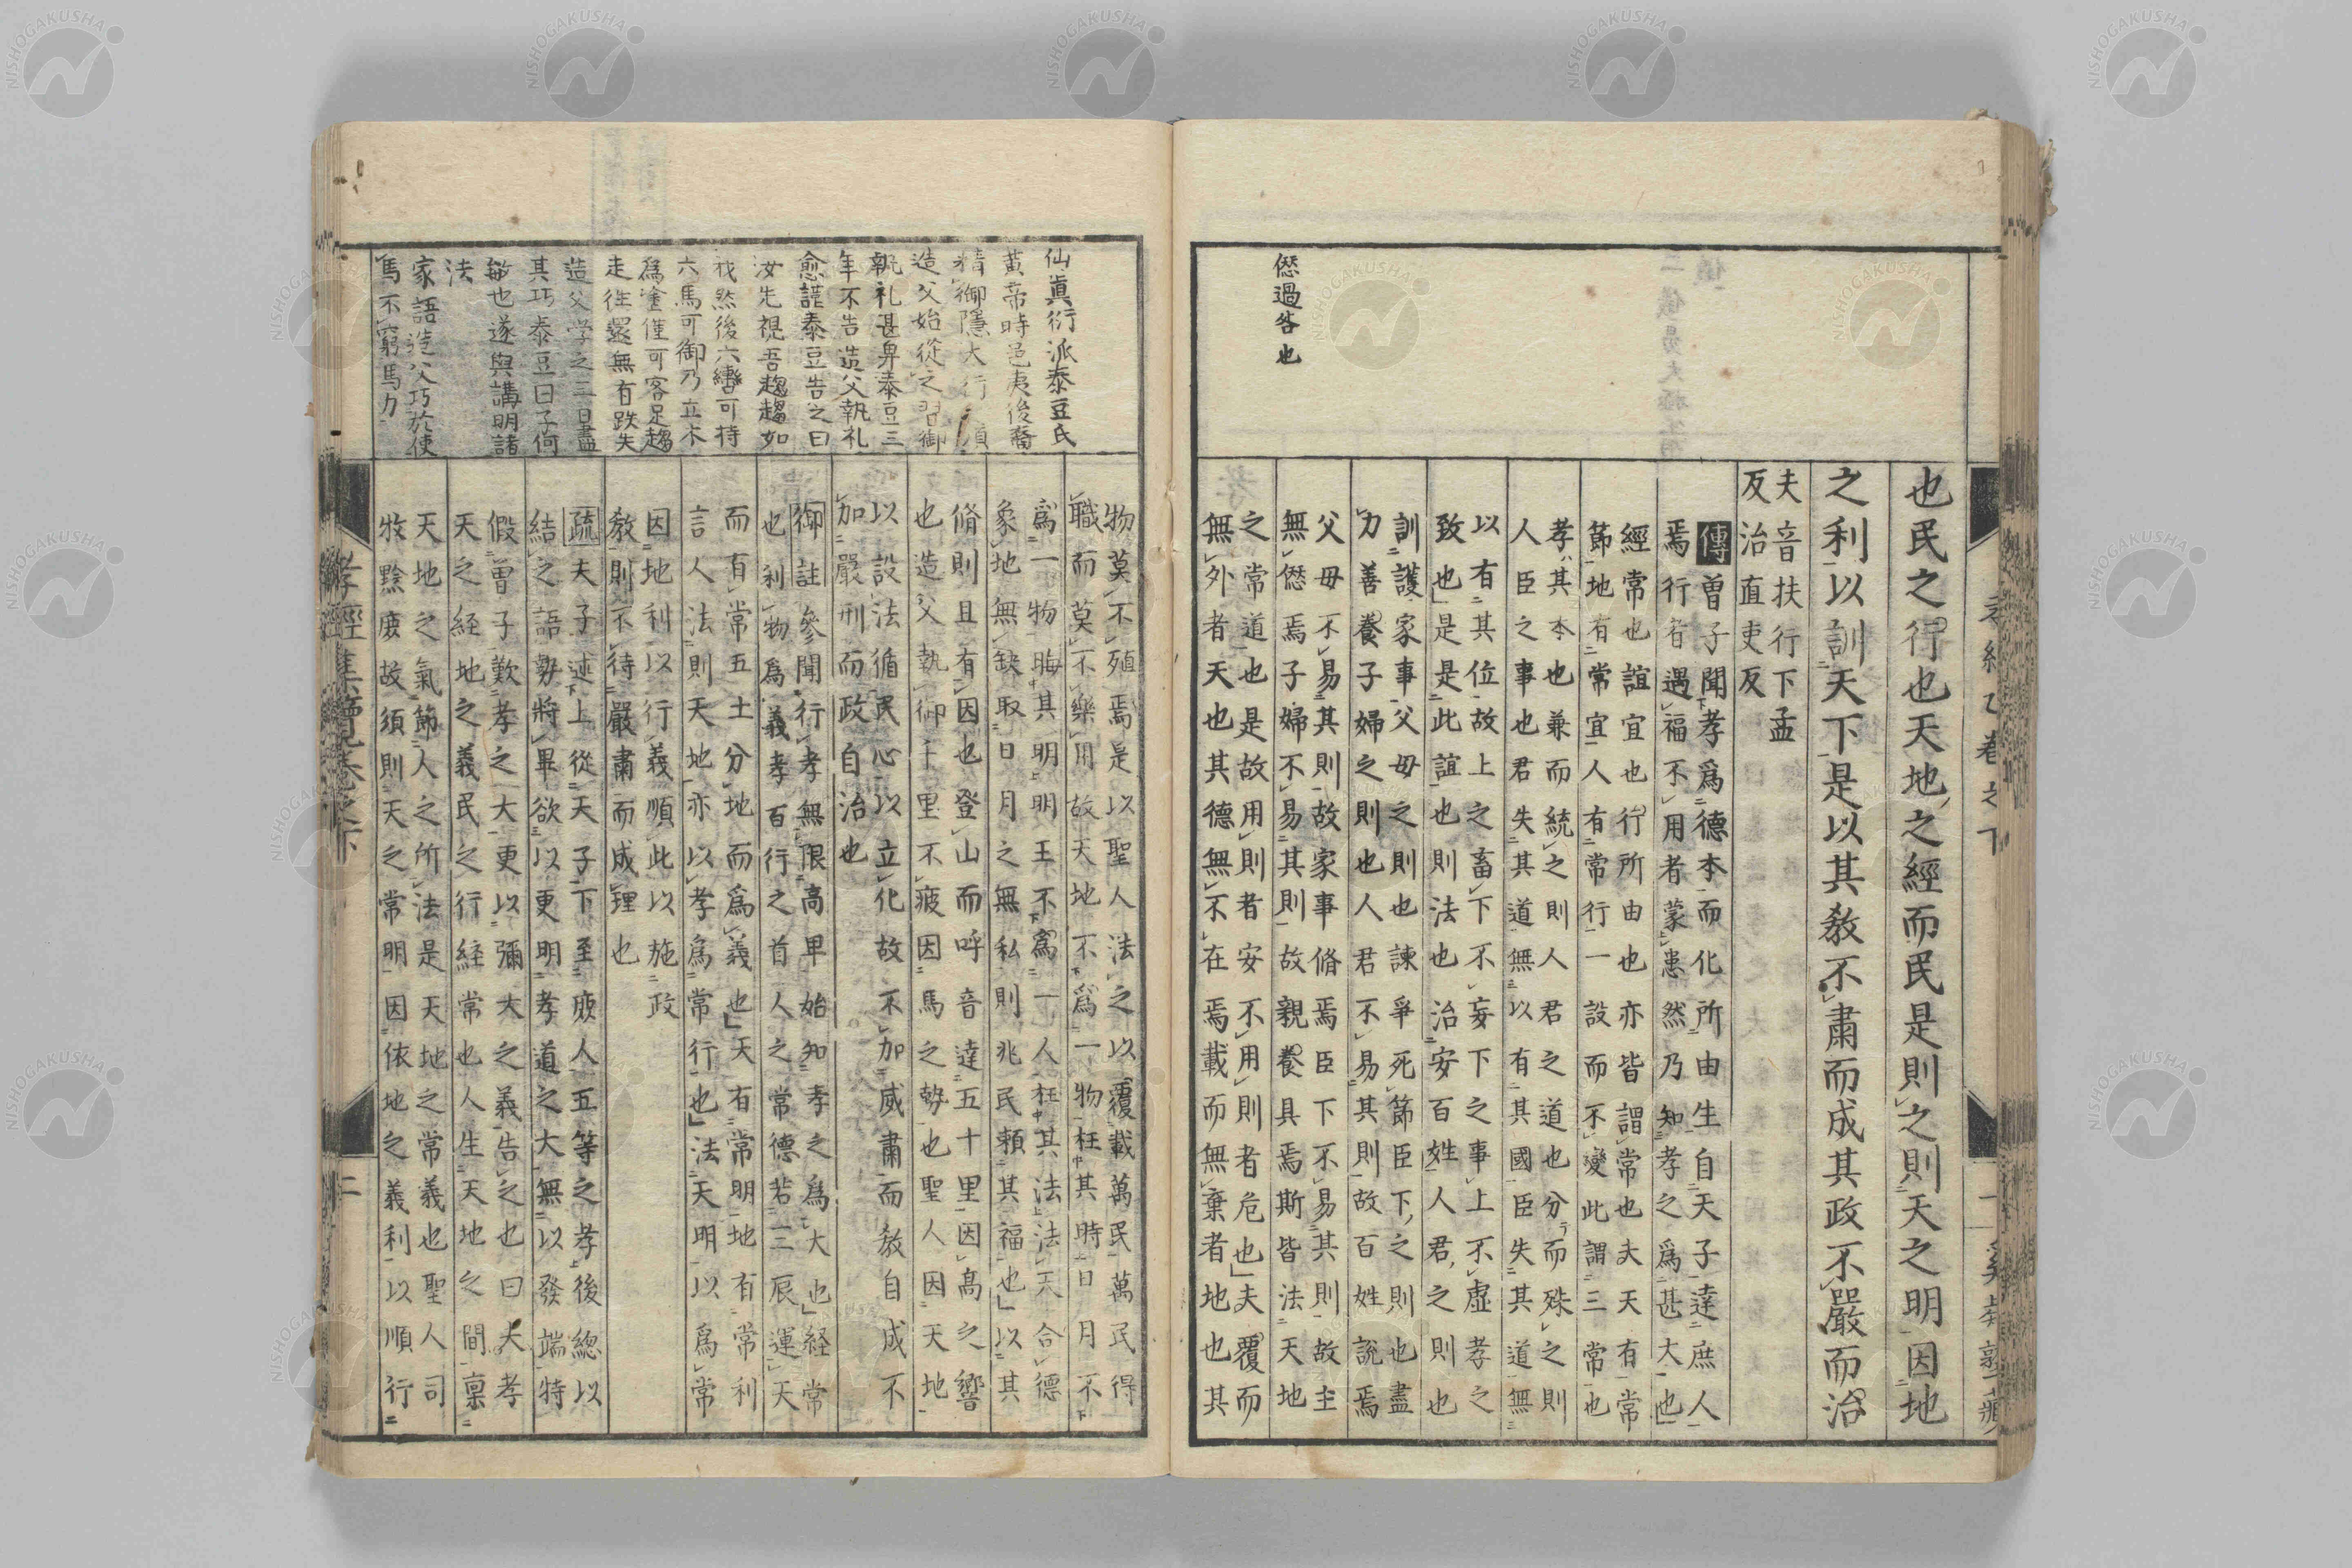 愆過咎也
也民之行也天地之經而民是則之則天之明因地
之利以訓天下是以其教不肅而成其政不嚴而治
夫音扶行下孟
反治直吏反
傳曽子聞孝爲德本而化所由生自天子達庶人
焉行者遇福不用者蒙患然乃知孝之爲甚大也
經常也誼宜也行所由也亦皆謂常也夫天有常
節地有常宜人有常行一設而不變此謂三常也
孝其本也兼而統之則人君之道也分而殊之則
人臣之事也君失其道無以有其國臣失其道無
以有其位故上之畜下不妄下之事上不虛孝之
致也是是此誼也則法也治安百姓人君之則也
訓護家事父母之則也諫爭死節臣下之則也盡
力善養子婦之則也人君不易其則故百姓說焉
父母不易其則故家事脩焉臣下不易其則故主
無愆焉子婦不易其則故親養具焉斯皆法天地
之常道也是故用則者安不用則者危也夫覆而
無外者天也其德無不在焉載而無棄者地也其
仙眞衍派泰豆氏
黄帝時邑夷後裔
精御隱大行
造父始從之習御
執礼甚卑泰豆三
年不告造父執礼
愈謹泰豆告之曰
汝先視吾趨趨如
我然後六轡可持
六馬可御乃立木
爲塗僅可容足趨
走徃還無有跌失
造父学之三日盡
其巧泰豆曰子何
敏也遂與講明諸
法
家語造父巧於使
馬不窮馬力
物莫不殖焉是以聖人法之以覆載萬民萬民得
職而莫不樂用故天地不爲一物枉其時日月不
爲一物晦其明明王不爲一人枉其法法天合德
象地無缺取日月之無私則兆民賴其福也以其
脩則且有因也登山而呼音達五十里因高之響
也造父執御千里不疲因馬之勢也聖人因天地
以設法循民心以立化故不加威肅而教自成不
加嚴刑而政自治也
御註參聞行孝無限高卑始知孝之爲大也経常
也利物爲義孝百行之首人之常德若三辰運天
而有常五土分地而爲義也天有常明地有常利
言人法則天地亦以孝爲常行也法天明以爲常
因地利以行義順此以施政
教則不待嚴肅而成理也
疏夫子述上從天子下至庶人五等之孝後總以
結之語勢將畢欲以更明孝道之大無以發端特
假曽子歎孝之大更以彌大之義告之也曰夫孝
天之経地之義民之行経常也人生天地之間稟
天地之氣節人之所法是天地之常義也聖人司
牧黔庶故須則天之常明因依地之義利以順行
孝經集覽巻之下
二